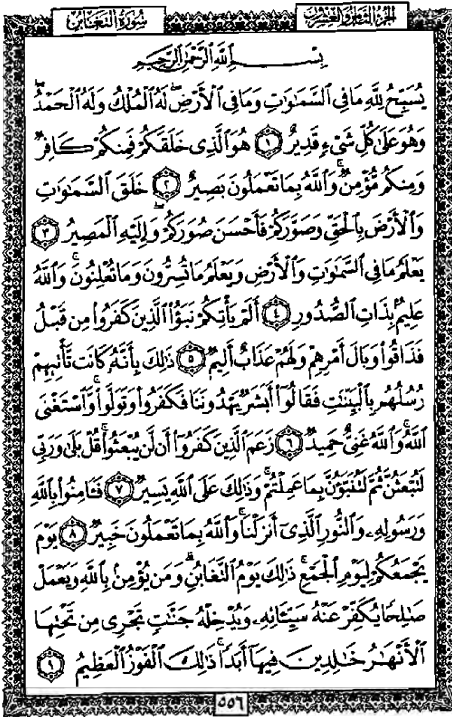 الجزء الثامن والعشرون
سورة التغابن
بِسْمِ اللَّهِ الرَّحْمَٰنِ الرَّحِيمِ
يُسَبِّحُ لِلَّهِ مَا فِي السَّمَٰوَٰتِ وَمَا فِي الْأَرْضِ ۖ لَهُ الْمُلْكُ وَلَهُ الْحَمْدُ ۖ
وَهُوَ عَلَىٰ كُلِّ شَيْءٍ قَدِيرٌ ١ هُوَ الَّذِي خَلَقَكُمْ فَمِنكُمْ كَافِرٌ
وَمِنكُم مُّؤْمِنٌ ۚ وَاللَّهُ بِمَا تَعْمَلُونَ بَصِيرٌ ٢ خَلَقَ السَّمَٰوَٰتِ
وَالْأَرْضَ بِالْحَقِّ وَصَوَّرَكُمْ فَأَحْسَنَ صُوَرَكُمْ ۖ وَإِلَيْهِ الْمَصِيرُ ٣
يَعْلَمُ مَا فِي السَّمَٰوَٰتِ وَالْأَرْضِ وَيَعْلَمُ مَا تُسِرُّونَ وَمَا تُعْلِنُونَ ۚ وَاللَّهُ
عَلِيمٌ بِذَاتِ الصُّدُورِ ٤ أَلَمْ يَأْتِكُمْ نَبَؤُا۟ الَّذِينَ كَفَرُوا۟ مِن قَبْلُ
فَذَاقُوا۟ وَبَالَ أَمْرِهِمْ وَلَهُمْ عَذَابٌ أَلِيمٌ ٥ ذَٰلِكَ بِأَنَّهُ كَانَت تَّأْتِيهِمْ
رُسُلُهُم بِالْبَيِّنَٰتِ فَقَالُوٓا۟ أَبَشَرٌ يَهْدُونَنَا فَكَفَرُوا۟ وَتَوَلَّوا۟ ۚ وَّاسْتَغْنَى
اللَّهُ ۚ وَاللَّهُ غَنِيٌّ حَمِيدٌ ٦ زَعَمَ الَّذِينَ كَفَرُوٓا۟ أَن لَّن يُبْعَثُوا۟ ۚ قُلْ بَلَىٰ وَرَبِّي
لَتُبْعَثُنَّ ثُمَّ لَتُنَبَّؤُنَّ بِمَا عَمِلْتُمْ ۚ وَذَٰلِكَ عَلَى اللَّهِ يَسِيرٌ ٧ فَـَٔامِنُوا۟ بِاللَّهِ
وَرَسُولِهِۦ وَالنُّورِ الَّذِيٓ أَنزَلْنَا ۚ وَاللَّهُ بِمَا تَعْمَلُونَ خَبِيرٌ ٨ يَوْمَ
يَجْمَعُكُمْ لِيَوْمِ الْجَمْعِ ۖ ذَٰلِكَ يَوْمُ التَّغَابُنِ ۗ وَمَن يُؤْمِنۢ بِاللَّهِ وَيَعْمَلْ
صَٰلِحًا يُكَفِّرْ عَنْهُ سَيِّـَٔاتِهِۦ وَيُدْخِلْهُ جَنَّٰتٍ تَجْرِي مِن تَحْتِهَا
الْأَنْهَٰرُ خَٰلِدِينَ فِيهَآ أَبَدًا ۚ ذَٰلِكَ الْفَوْزُ الْعَظِيمُ ٩
٥٥٦